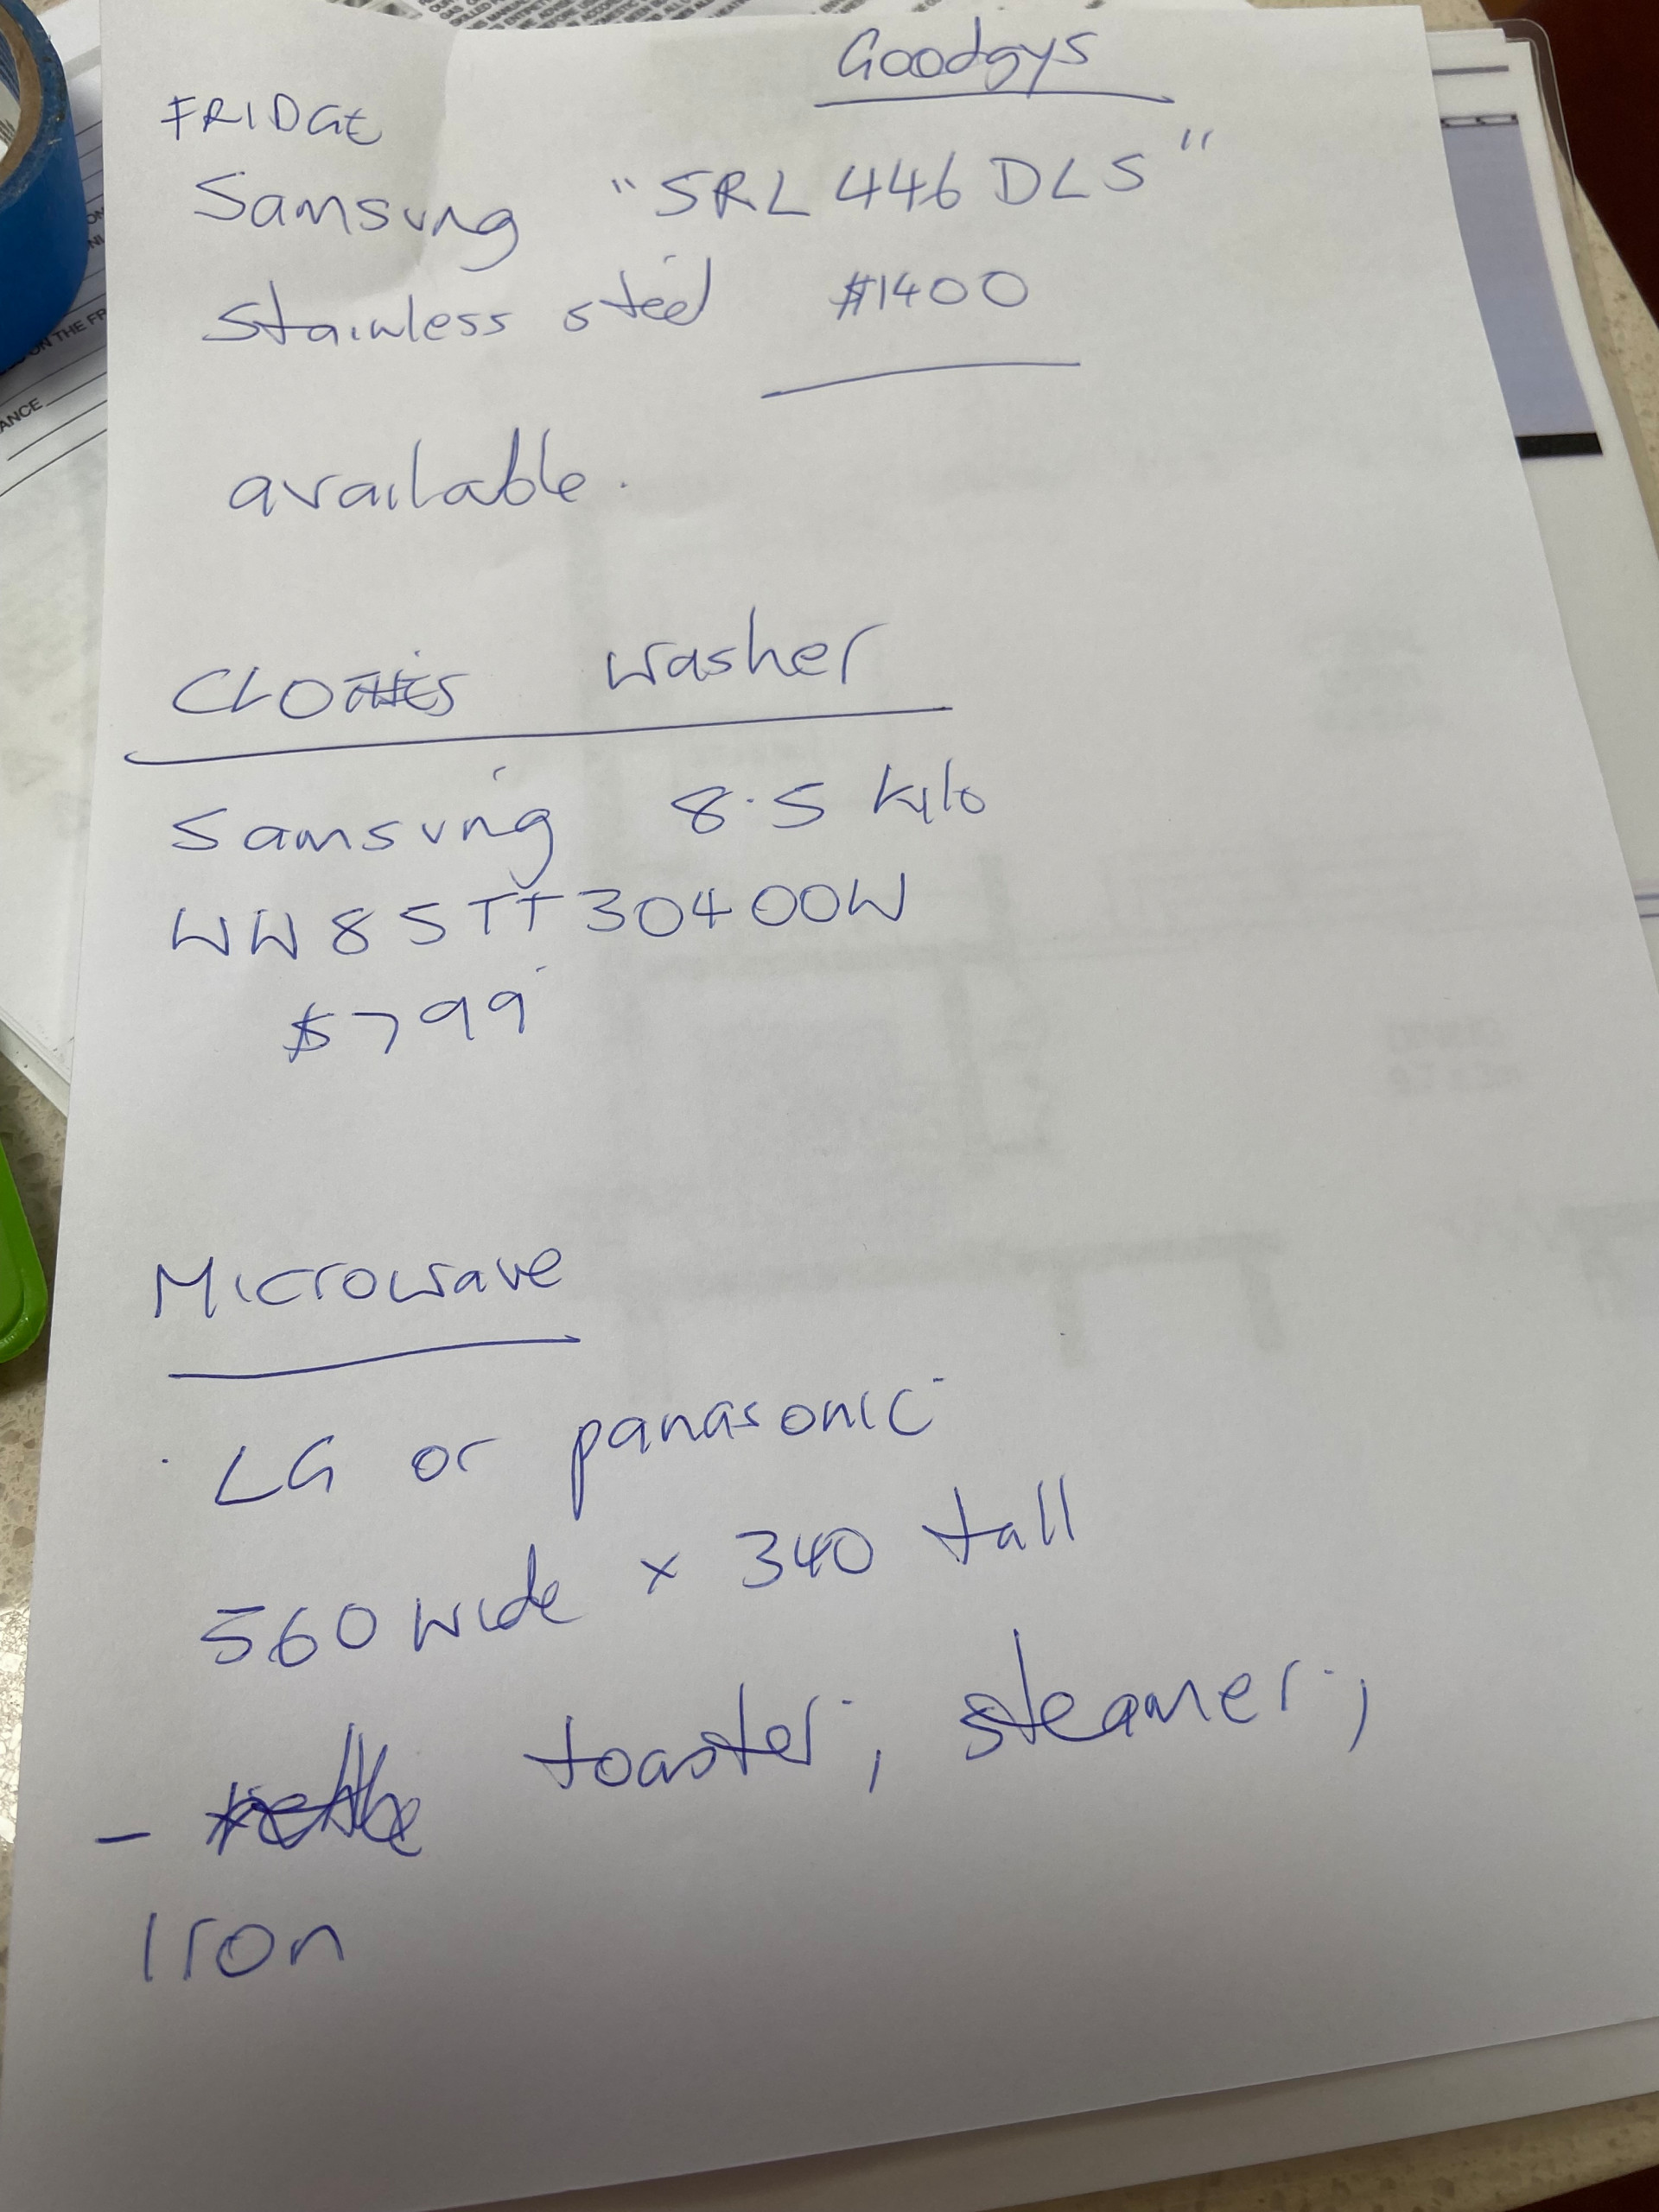 Goodgys
FRIDGE
Samsung "SRL446DLS"
stainless steel $1400
available.
CLOTHES washer
Samsung 8.5 kilo
WW85TT30400W
$799
Microwave
LG or panasonic
560 wide x 340 tall
- kettle toaster, steamer,
Iron
ON THE FR
ANCE